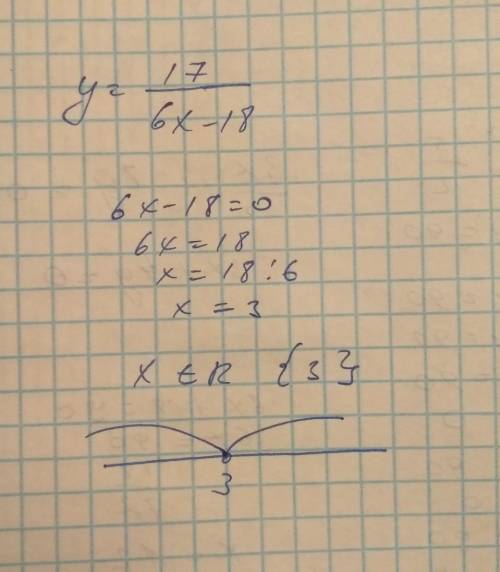 y = 17 / 6x - 18
6x - 18 = 0
6x = 18
x = 18 : 6
x = 3
x ∈ R {3}
3